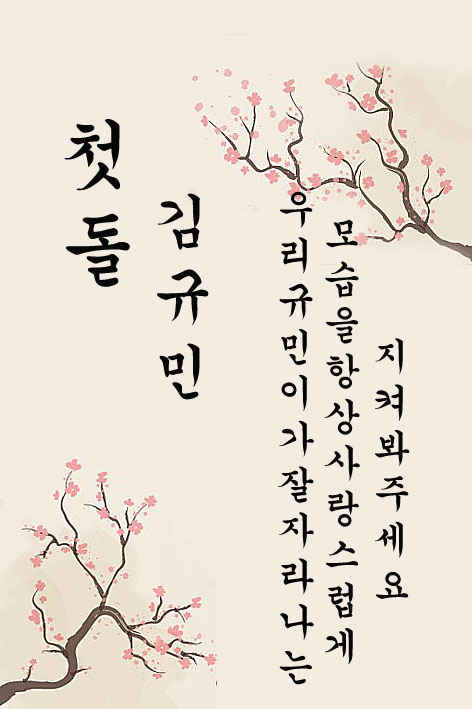 첫돌
김규민
우리규민이가잘자라나는
모습을항상사랑스럽게
지켜봐주세요